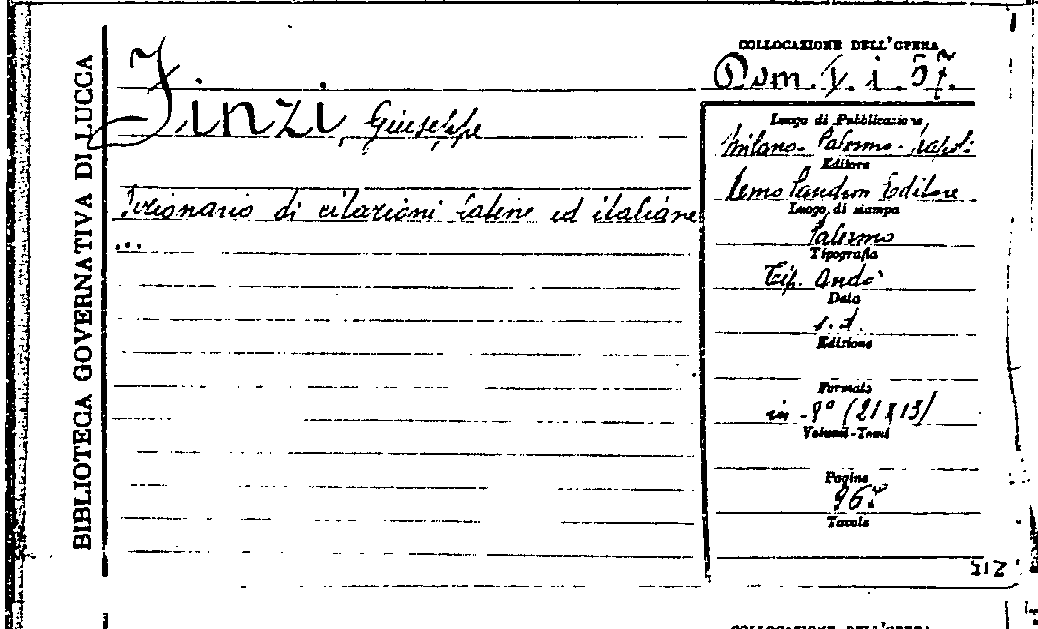 BIBLIOTECA GOVERNATIVA DI LUCCA
Finzi, Giuseppe
Dizionario di citazioni latine ed italiane
...
COLLOCAZIONE DELL'OPERA
Dom. V. i. 57.
Luogo di Pubblicazione
Milano - Palermo - Napoli
Editore
Remo Sandron Editore
Luogo di stampa
Palermo
Tipografia
Tip. Andò
Data
s.d.
Edizione
Formato
in - 8° (21X13)
Volumi-Tomi
Pagine
965
Tavole
COLLOCAZIONE DELL'OPERA